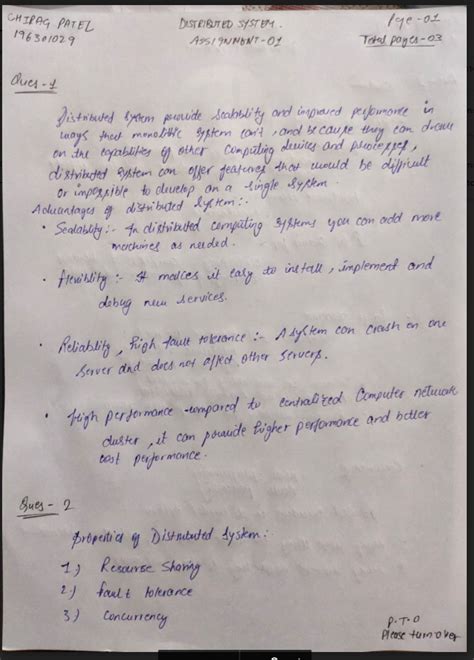 CHIRAG PATEL
196301029
DISTRIBUTED SYSTEM.
ASSIGNMENT-01
Page-01
Total pages-03
Ques-1
Distributed system provide scalability and improved performance in
ways that monolithic system can't, and because they can draw
on the capabilities of other computing devices and processes,
distributed system can offer features that would be difficult
or impossible to develop on a single system.
Advantages of distributed system:-
• Scalablity:- In distributed computing systems you can add more
machines as needed.
• flexiblity:- It makes it easy to install, implement and
debug new services.
• Reliablity, high fault tolerance:- A system can crash on one
server and does not affect other servers.
• High performance compared to centralized computer network
cluster, it can provide higher performance and better
cost performance.
Ques-2
Properties of Distributed System:
1) Resource Sharing
2) fault tolerance
3) Concurrency
P.T.O
Please turn over